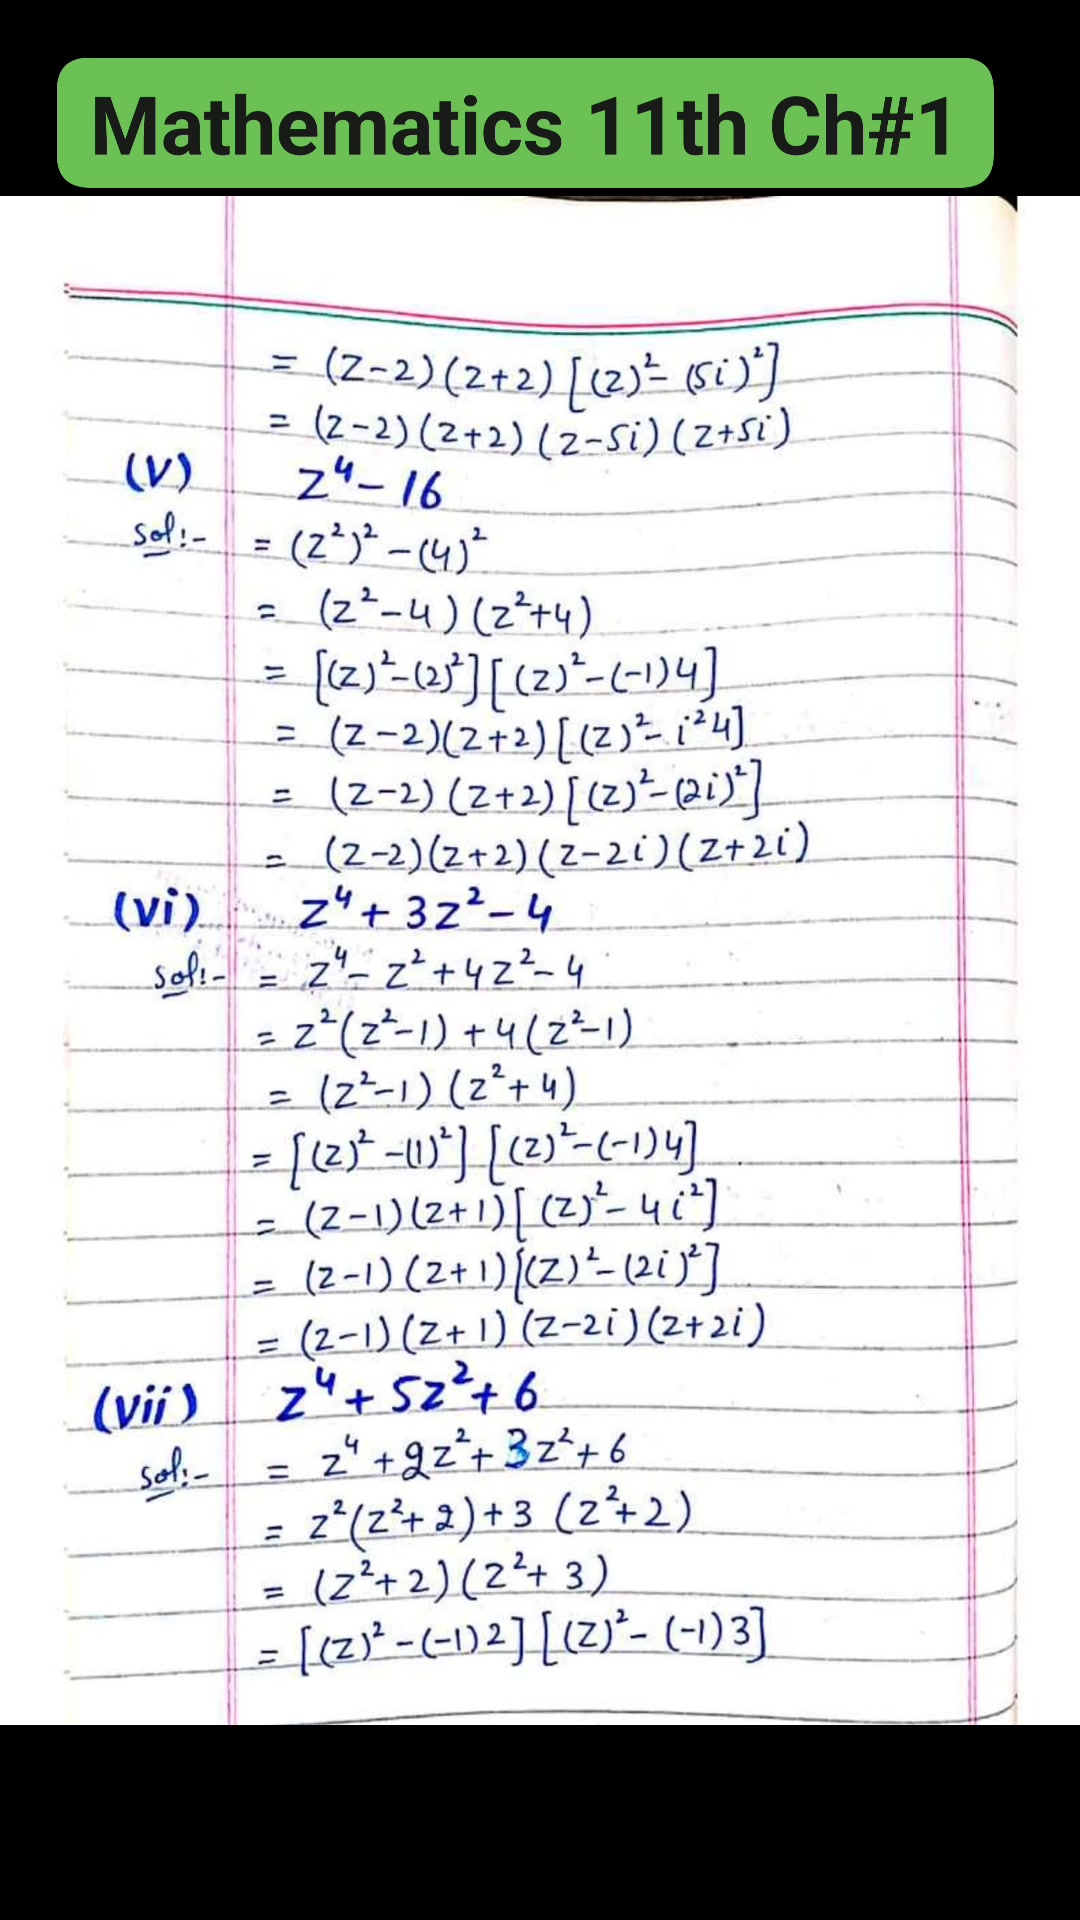 Mathematics 11th Ch#1
= (z-2)(z+2)[(z)²-(5i)²]
= (z-2)(z+2)(z-5i)(z+5i)
(v) z⁴-16
Sol:- = (z²)²-(4)²
= (z²-4)(z²+4)
= [(z)²-(2)²][(z)²-(-1)4]
= (z-2)(z+2)[(z)²-i²4]
= (z-2)(z+2)[(z)²-(2i)²]
= (z-2)(z+2)(z-2i)(z+2i)
(vi) z⁴+3z²-4
Sol:- = z⁴-z²+4z²-4
= z²(z²-1)+4(z²-1)
= (z²-1)(z²+4)
= [(z)²-(1)²][(z)²-(-1)4]
= (z-1)(z+1)[(z)²-4i²]
= (z-1)(z+1)[(z)²-(2i)²]
= (z-1)(z+1)(z-2i)(z+2i)
(vii) z⁴+5z²+6
Sol:- = z⁴+2z²+3z²+6
= z²(z²+2)+3(z²+2)
= (z²+2)(z²+3)
= [(z)²-(-1)2][(z)²-(-1)3]